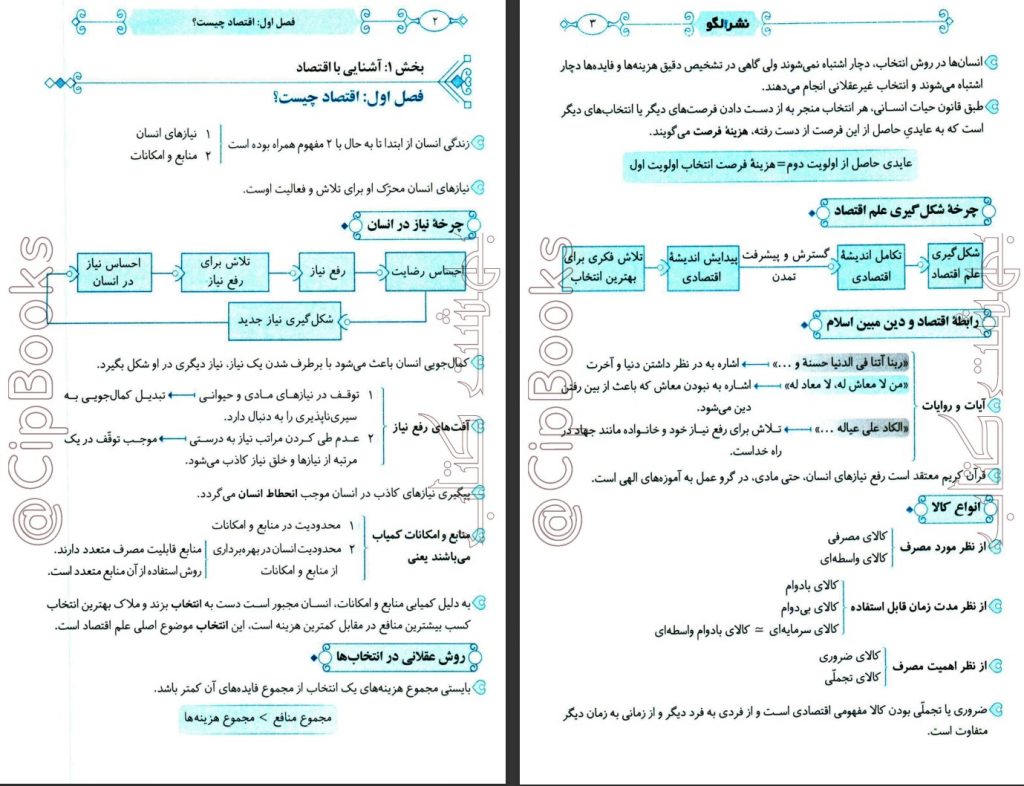 فصل اول: اقتصاد چیست؟
۲
بخش ۱: آشنایی با اقتصاد
فصل اول: اقتصاد چیست؟
زندگی انسان از ابتدا تا به حال با ۲ مفهوم همراه بوده است
۱ نیازهای انسان
۲ منابع و امکانات
نیازهای انسان محرّک او برای تلاش و فعالیت اوست.
چرخهٔ نیاز در انسان
احساس نیاز در انسان
تلاش برای رفع نیاز
رفع نیاز
احساس رضایت
شکل‌گیری نیاز جدید
کمال‌جویی انسان باعث می‌شود با برطرف شدن یک نیاز، نیاز دیگری در او شکل بگیرد.
آفت‌های رفع نیاز
۱ توقف در نیازهای مادی و حیوانی ← تبدیل کمال‌جویی به
سیری‌ناپذیری را به دنبال دارد.
۲ عدم طی کردن مراتب نیاز به درستی ← موجب توقّف در یک
مرتبه از نیازها و خلق نیاز کاذب می‌شود.
پیگیری نیازهای کاذب در انسان موجب انحطاط انسان می‌گردد.
منابع و امکانات کمیاب
می‌باشند یعنی
۱ محدودیت در منابع و امکانات
۲ محدودیت انسان در بهره‌برداری
از منابع و امکانات
منابع قابلیت مصرف متعدد دارند.
روش استفاده از آن منابع متعدد است.
به دلیل کمیابی منابع و امکانات، انسان مجبور است دست به انتخاب بزند و ملاک بهترین انتخاب
کسب بیشترین منافع در مقابل کمترین هزینه است، این انتخاب موضوع اصلی علم اقتصاد است.
روش عقلانی در انتخاب‌ها
بایستی مجموع هزینه‌های یک انتخاب از مجموع فایده‌های آن کمتر باشد.
مجموع منافع > مجموع هزینه‌ها
@CipBooks
نشر الگو
۳
انسان‌ها در روش انتخاب، دچار اشتباه نمی‌شوند ولی گاهی در تشخیص دقیق هزینه‌ها و فایده‌ها دچار
اشتباه می‌شوند و انتخاب غیرعقلانی انجام می‌دهند.
طبق قانون حیات انسانی، هر انتخاب منجر به از دست دادن فرصت‌های دیگر یا انتخاب‌های دیگر
است که به عایدیِ حاصل از این فرصت از دست رفته، هزینهٔ فرصت می‌گویند.
عایدی حاصل از اولویت دوم = هزینهٔ فرصت انتخاب اولویت اول
چرخهٔ شکل‌گیری علم اقتصاد
تلاش فکری برای بهترین انتخاب
پیدایش اندیشهٔ اقتصادی
گسترش و پیشرفت تمدن
تکامل اندیشهٔ اقتصادی
شکل‌گیری علم اقتصاد
رابطهٔ اقتصاد و دین مبین اسلام
آیات و روایات
«ربنا آتنا فی الدنیا حسنة و ...» ← اشاره به در نظر داشتن دنیا و آخرت
«من لا معاش له، لا معاد له» ← اشاره به نبودن معاش که باعث از بین رفتن
دین می‌شود.
«الکاد علی عیاله ...» ← تلاش برای رفع نیاز خود و خانواده مانند جهاد در
راه خداست.
قرآن کریم معتقد است رفع نیازهای انسان، حتی مادی، در گرو عمل به آموزه‌های الهی است.
انواع کالا
از نظر مورد مصرف
کالای مصرفی
کالای واسطه‌ای
از نظر مدت زمان قابل استفاده
کالای بادوام
کالای بی‌دوام
کالای سرمایه‌ای ≃ کالای بادوام واسطه‌ای
از نظر اهمیت مصرف
کالای ضروری
کالای تجملّی
ضروری یا تجملّی بودن کالا مفهومی اقتصادی است و از فردی به فرد دیگر و از زمانی به زمان دیگر
متفاوت است.
@CipBooks